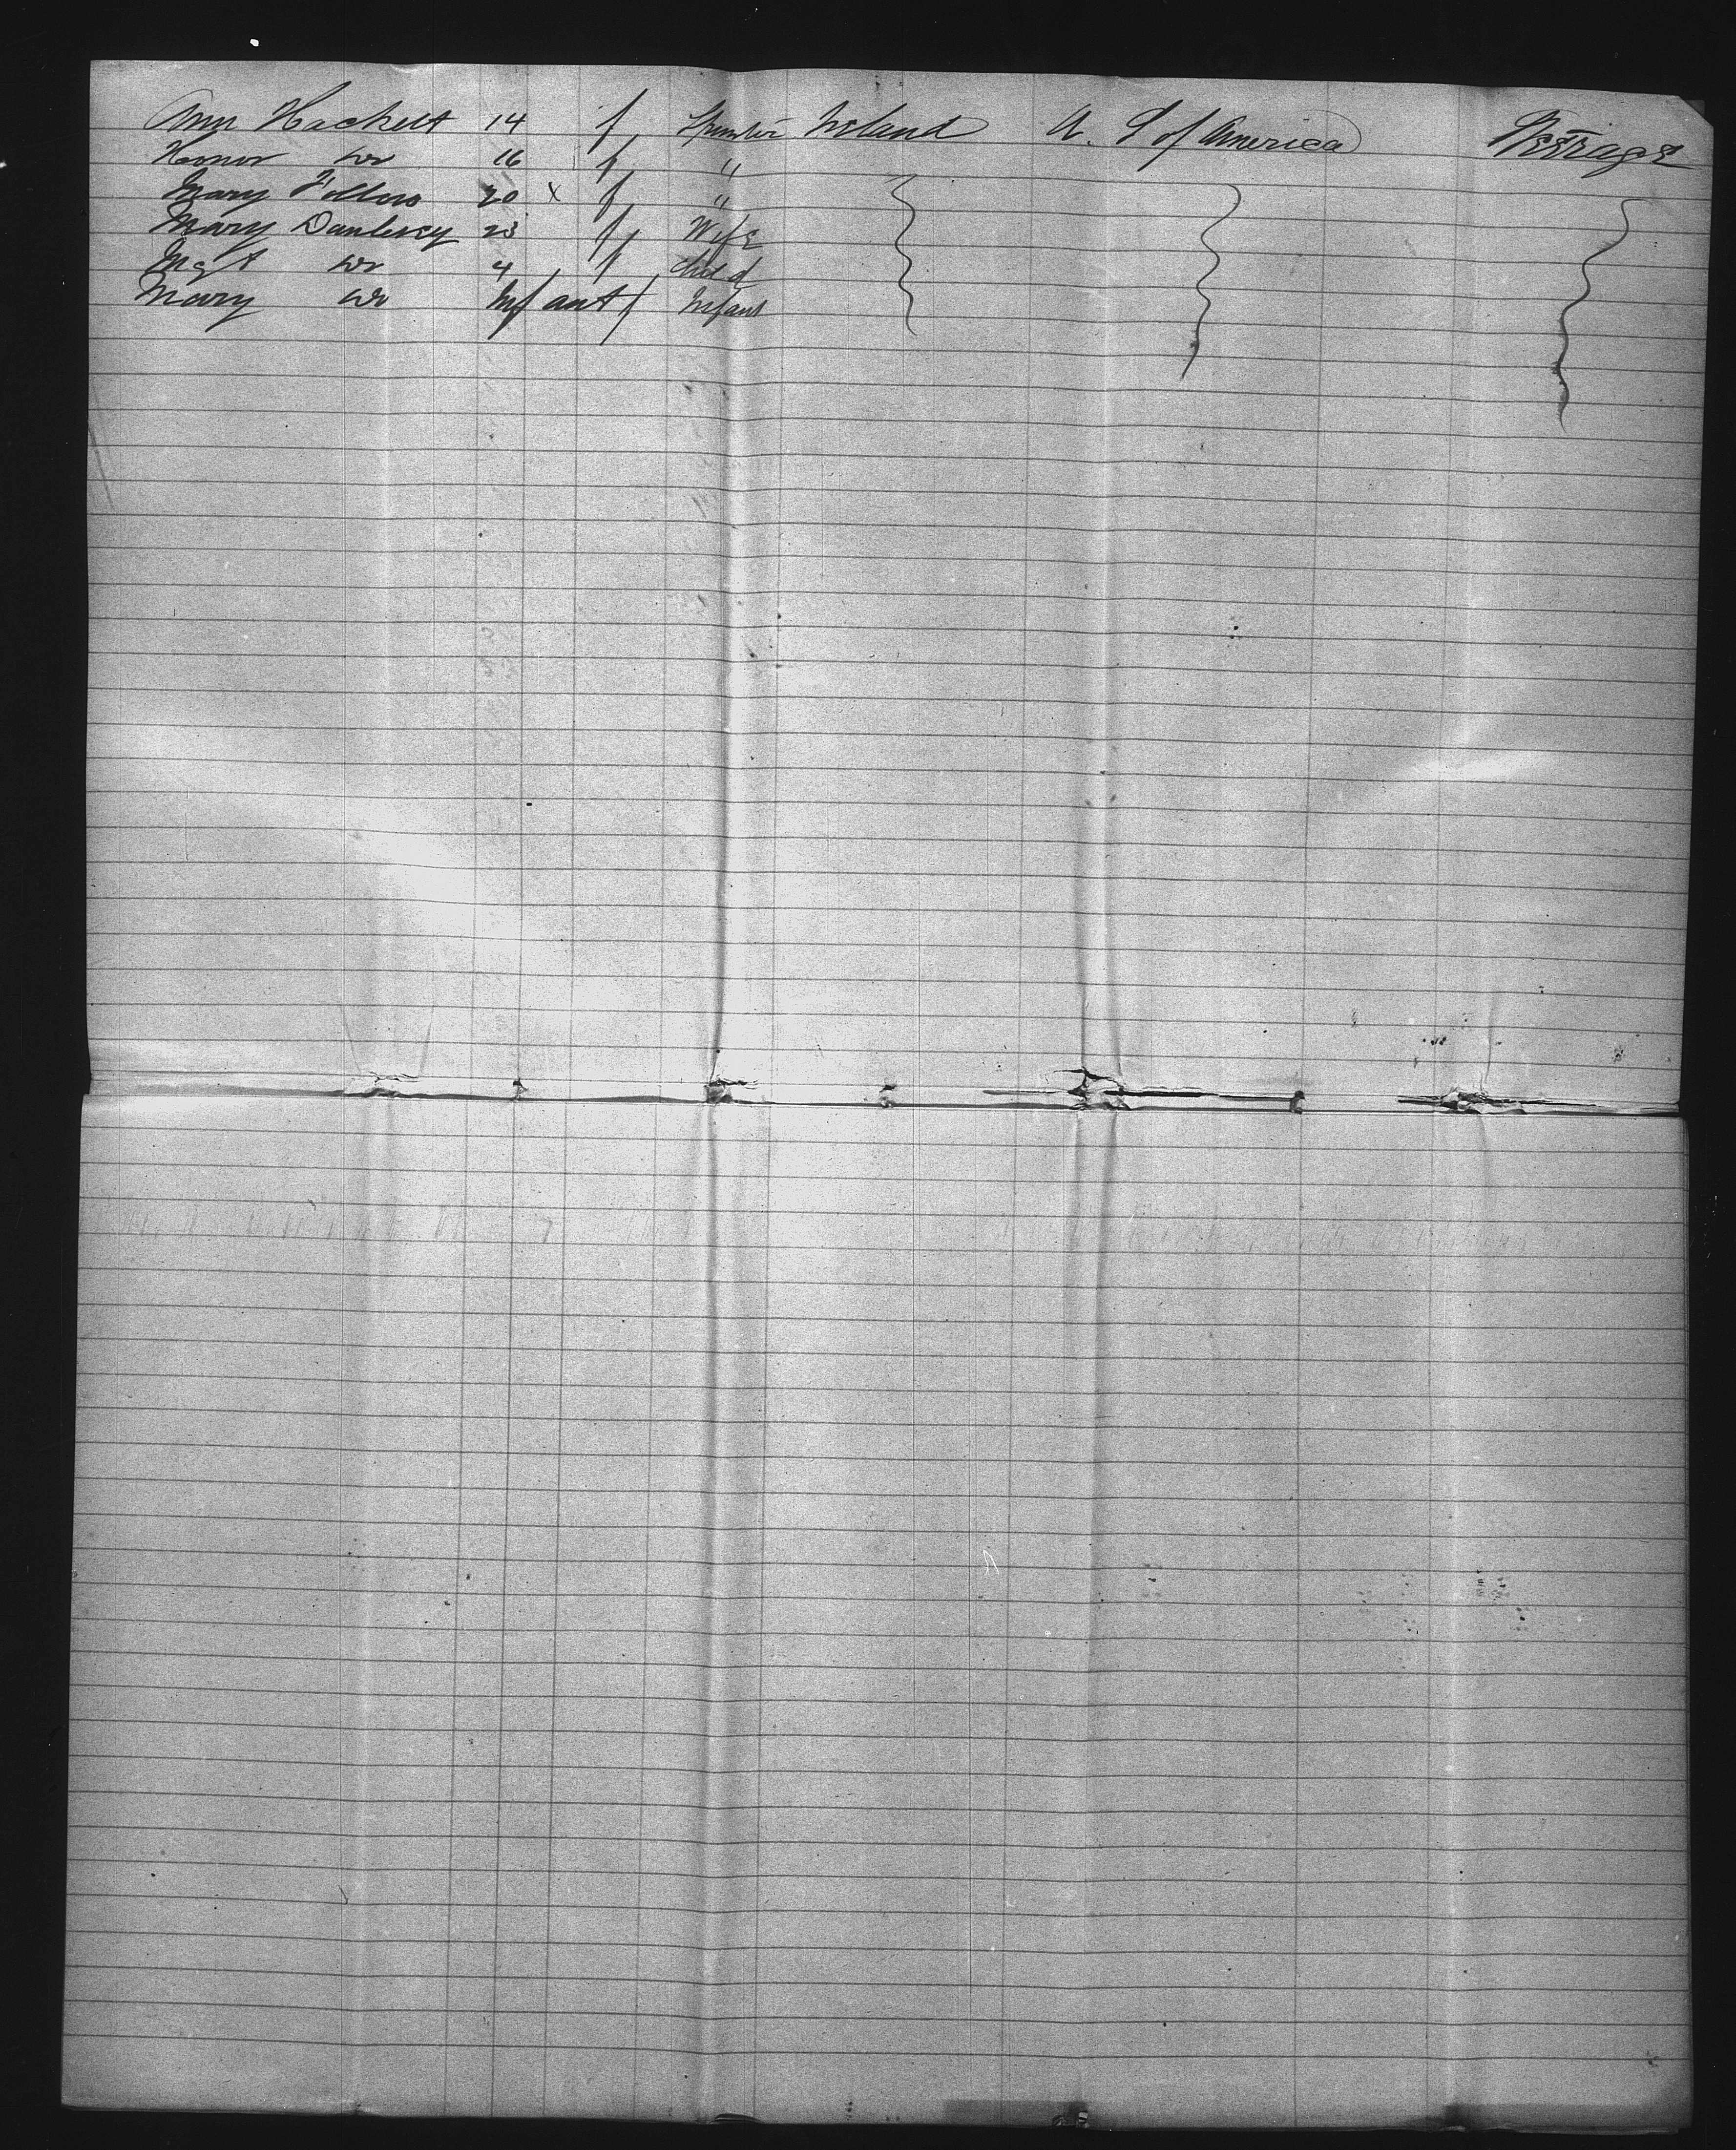 Ann Hackett 14 f Spinster Ireland U. S of America Steerage
Honor Do 16 f "
Mary 20 x f "
Mary 23 f Wife
Mgt Do 4 f Child
Mary Do Infant f Infant